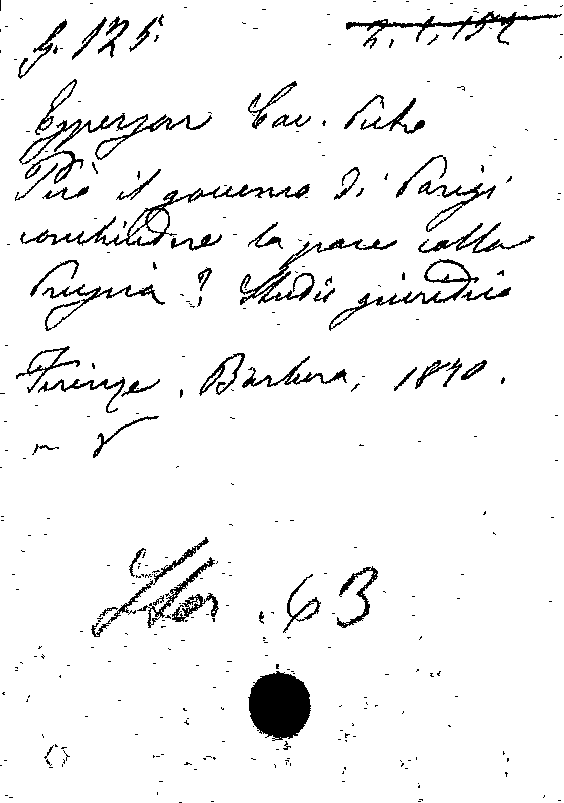 G. 125.
2. 1, 152
Esperson Cav. Pietro
Può il governo di Parigi
conchiudere la pace colla
Prussia? Studio giuridico
Firenze. Barbera, 1870.
in 8
Stor. 63